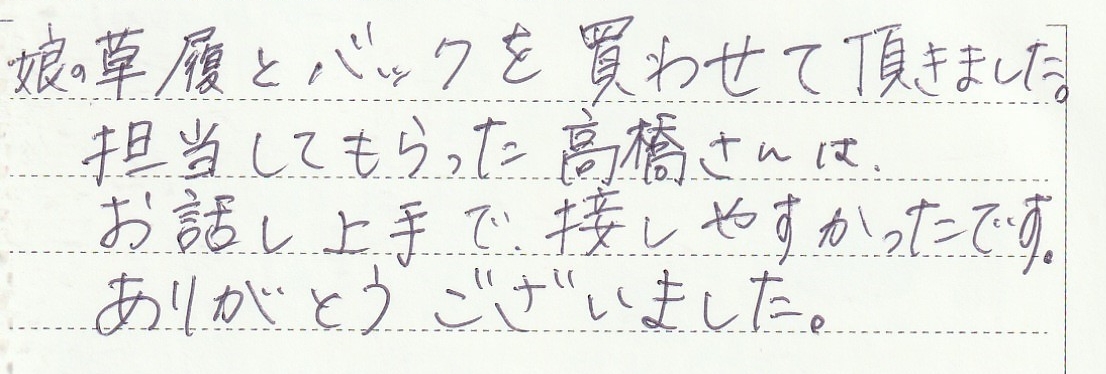 娘の草履とバックを買わせて頂きました。
担当してもらった高橋さんは、
お話し上手で、接しやすかったです。
ありがとうございました。